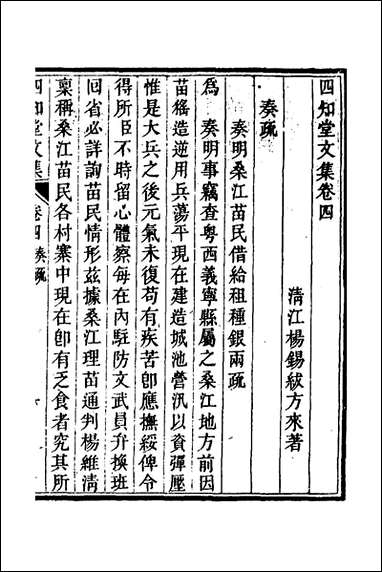 四知堂文集卷四
清江楊錫紱方來著
奏疏
奏明桑江苗民借給租種銀兩疏
爲 奏明事竊查粤西義寧縣屬之桑江地方前因
苗猺造逆用兵蕩平現在建造城池營汛以資彈壓
惟是大兵之後元氣未復苟有疾苦卽應撫綏俾令
得所臣不時留心體察每在內駐防文武員弁換班
回省必詳詢苗民情形兹據桑江理苗通判楊維清
稟稱桑江苗民各村寨中現在卽有乏食者究其所
四知堂文集
卷四 奏疏